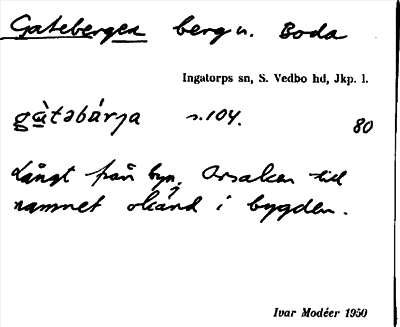 Gateberget berg u. Boda
Ingatorps sn, S. Vedbo hd, Jkp. l.
gàtəbárja s.104.
80
Långt från byn. Orsaken till
namnet okänd i bygden.
Ivar Modéer 1950